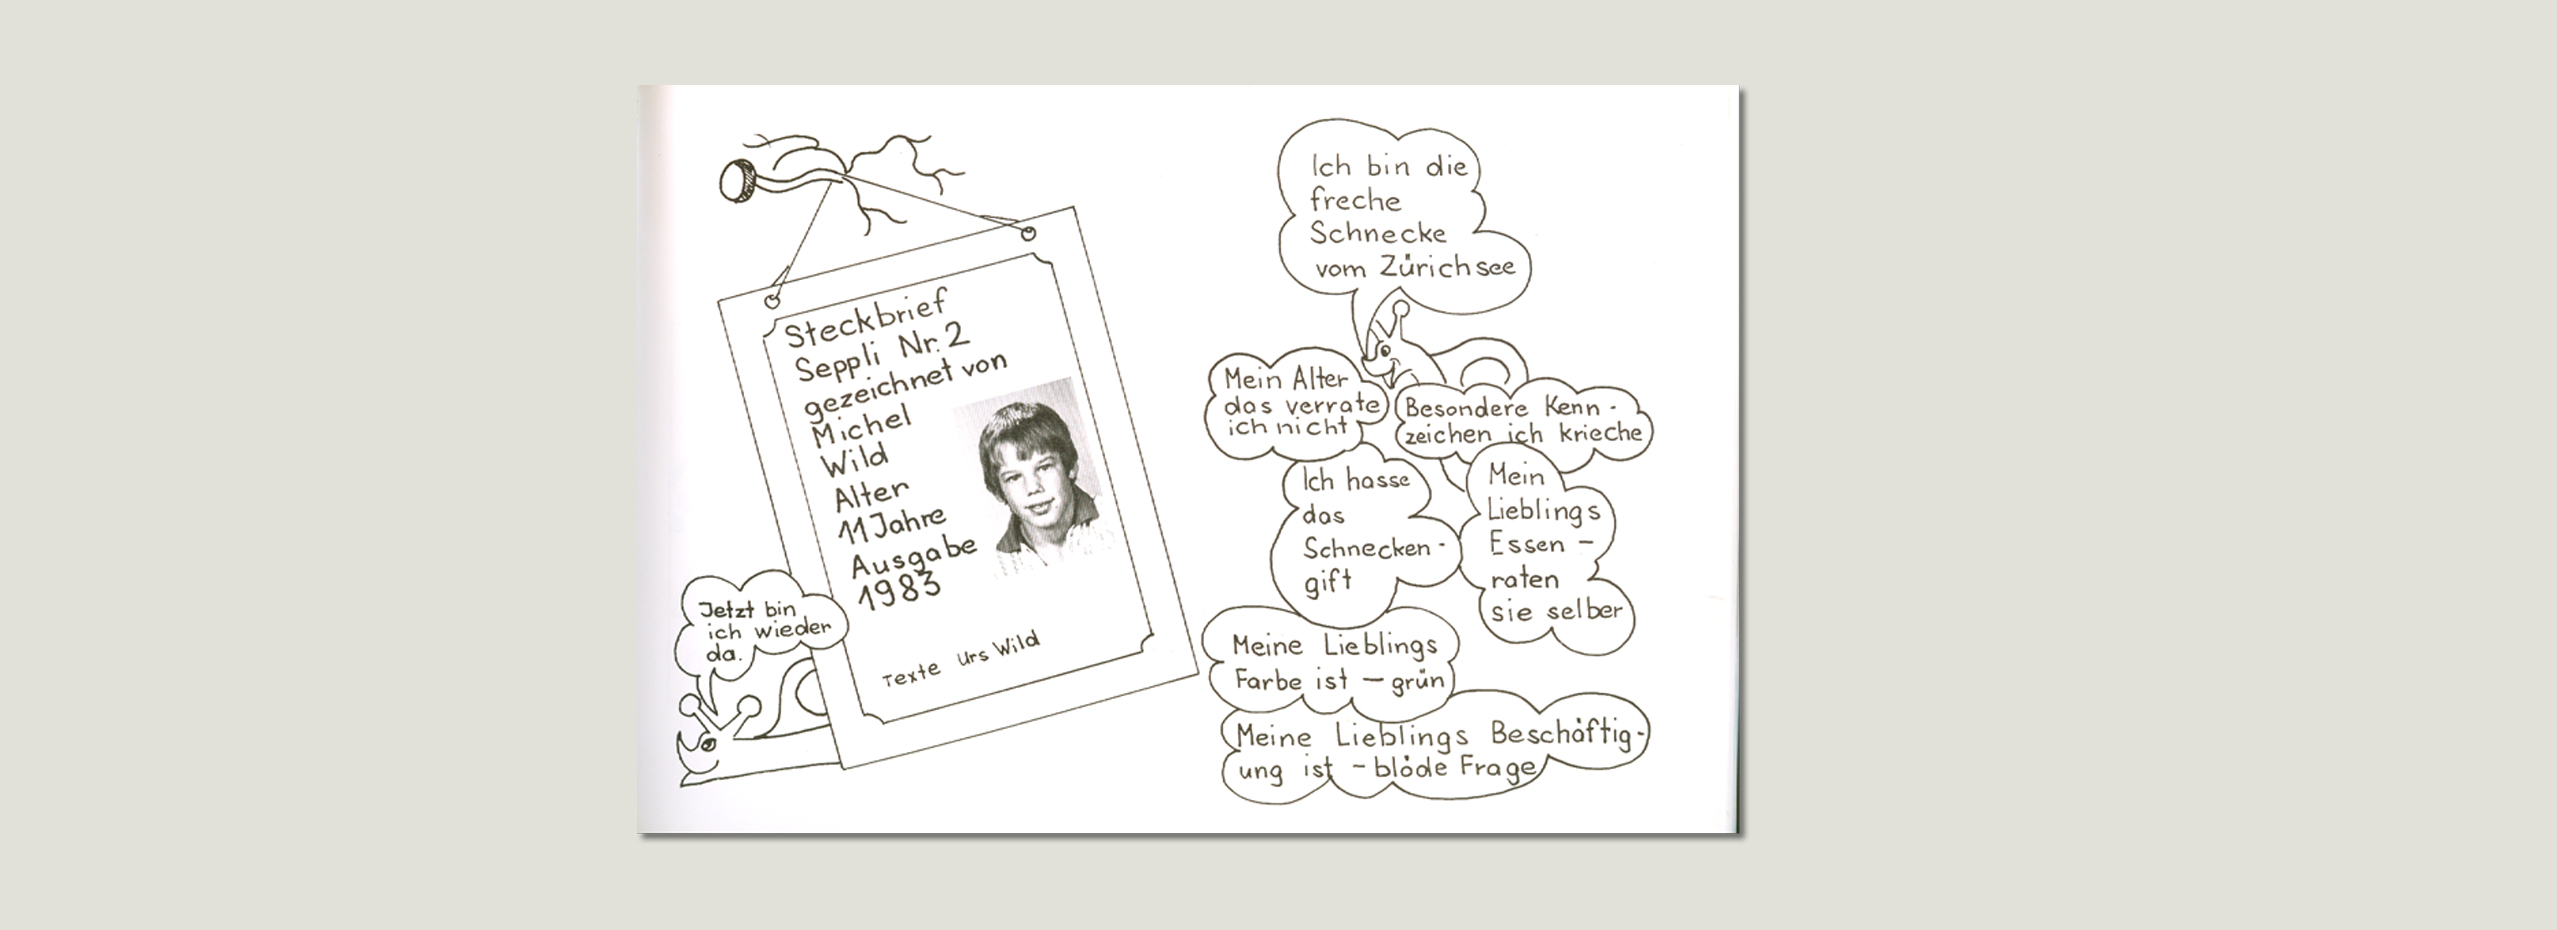 Steckbrief
Seppli Nr. 2
gezeichnet von
Michel
Wild
Alter
11 Jahre
Ausgabe
1983
Texte Urs Wild
Jetzt bin
ich wieder
da.
Ich bin die
freche
Schnecke
vom Zürichsee
Mein Alter
das verrate
ich nicht
Besondere Kenn-
zeichen ich krieche
Ich hasse
das
Schnecken-
gift
Mein
Lieblings
Essen –
raten
sie selber
Meine Lieblings
Farbe ist – grün
Meine Lieblings Beschäftig-
ung ist – blöde Frage